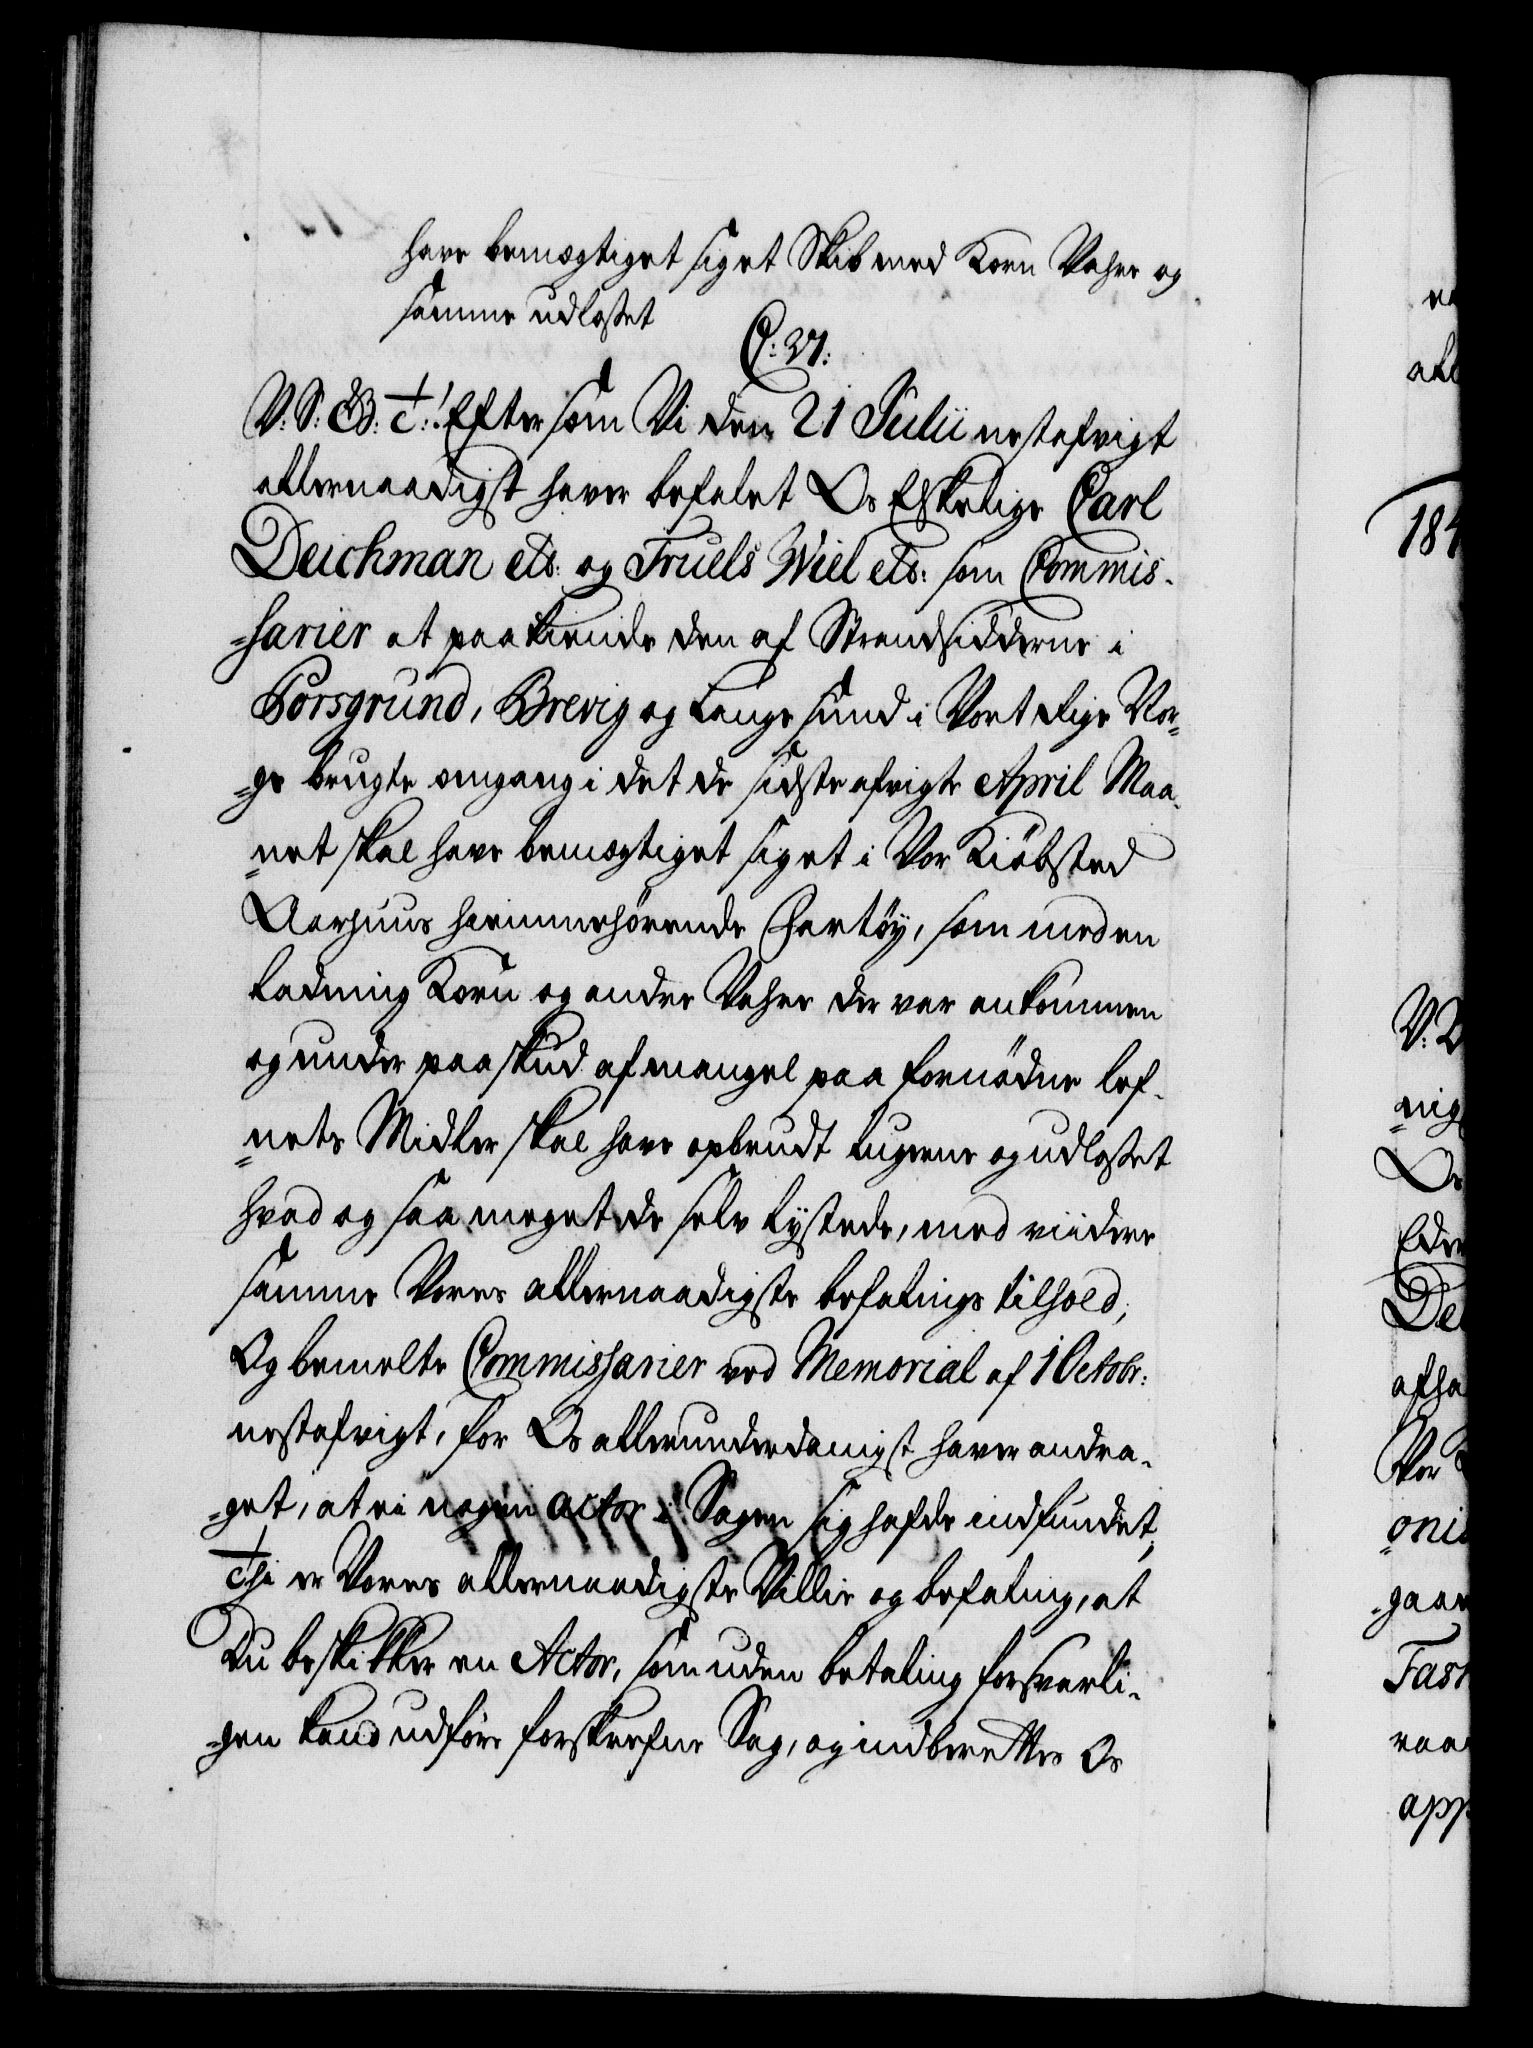 have bemægtiget sig et Skib med Korn Vahre og
samme udlosset
C: VI:
V: S: G: T:! Eftersom Vi den 21 Julii nestafvigt
allernaadigst haver befalet Os Elskelige Carl
Deichman etc: og Truels Wiel etc: som Commis-
-sarier at paakiende den af Strandsidderne i
Porsgrund, Brevig og Langesund i Vort Rige Nor-
-ge brugte omgang i det de sidste afvigte April Maa-
-net skal have bemægtiget sig et i Vor Kiöbsted
Aarhuus hiemmehörende Fartöy, som med en
Ladning Korn og andre Vahre der var ankommen
og under paaskud af mangel paa fornödne lef-
-nets Midler skal have opbrudt lugerne og udlosset
hvad og saa meget de selv lystede, med viidere
samme Vores allernaadigste befalings tilhold;
Og bemelte Commissarier ved Memorial af 1 Octobr:
nestafvigt, for Os allerunderdanigst haver andra-
-get, at ei nogen Actor i Sagen sig hafde indfundet;
Thi er Vores allernaadigste Villie og befaling, at
Du beskikker en Actor, som uden betaling forsvarli-
-gen kand udföre forskrefne Sag, og indberettes Os
184
V: V
-nig
Os
Eder
De
afha
Vor
-oni
-gaar
Tast
raa
app